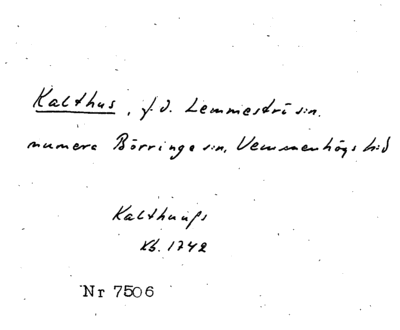 Kalthus, f.d. Lemmeströ sn.
numera Börringe sn, Vemmenhögs hd
Kalthuus
Kb. 1742
Nr 7506